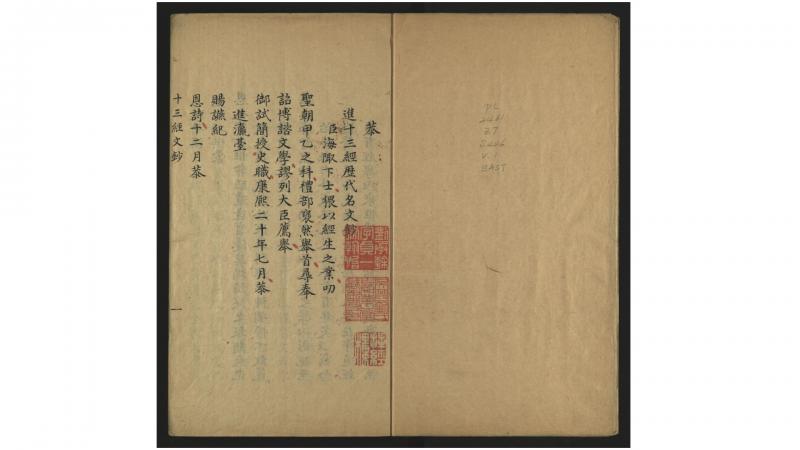 恭
進十三經歷代名文鈔
臣海陬下士猥以經生之業叨
聖朝甲乙之科禮部褎然舉首尋奉
詔博諮文學謬列大臣薦舉
御試簡授史職康熙二十年七月恭
進瀛臺
賜讌紀
恩詩十二月恭
十三經文鈔
一
PL
2461
Z7
V.1
EAST